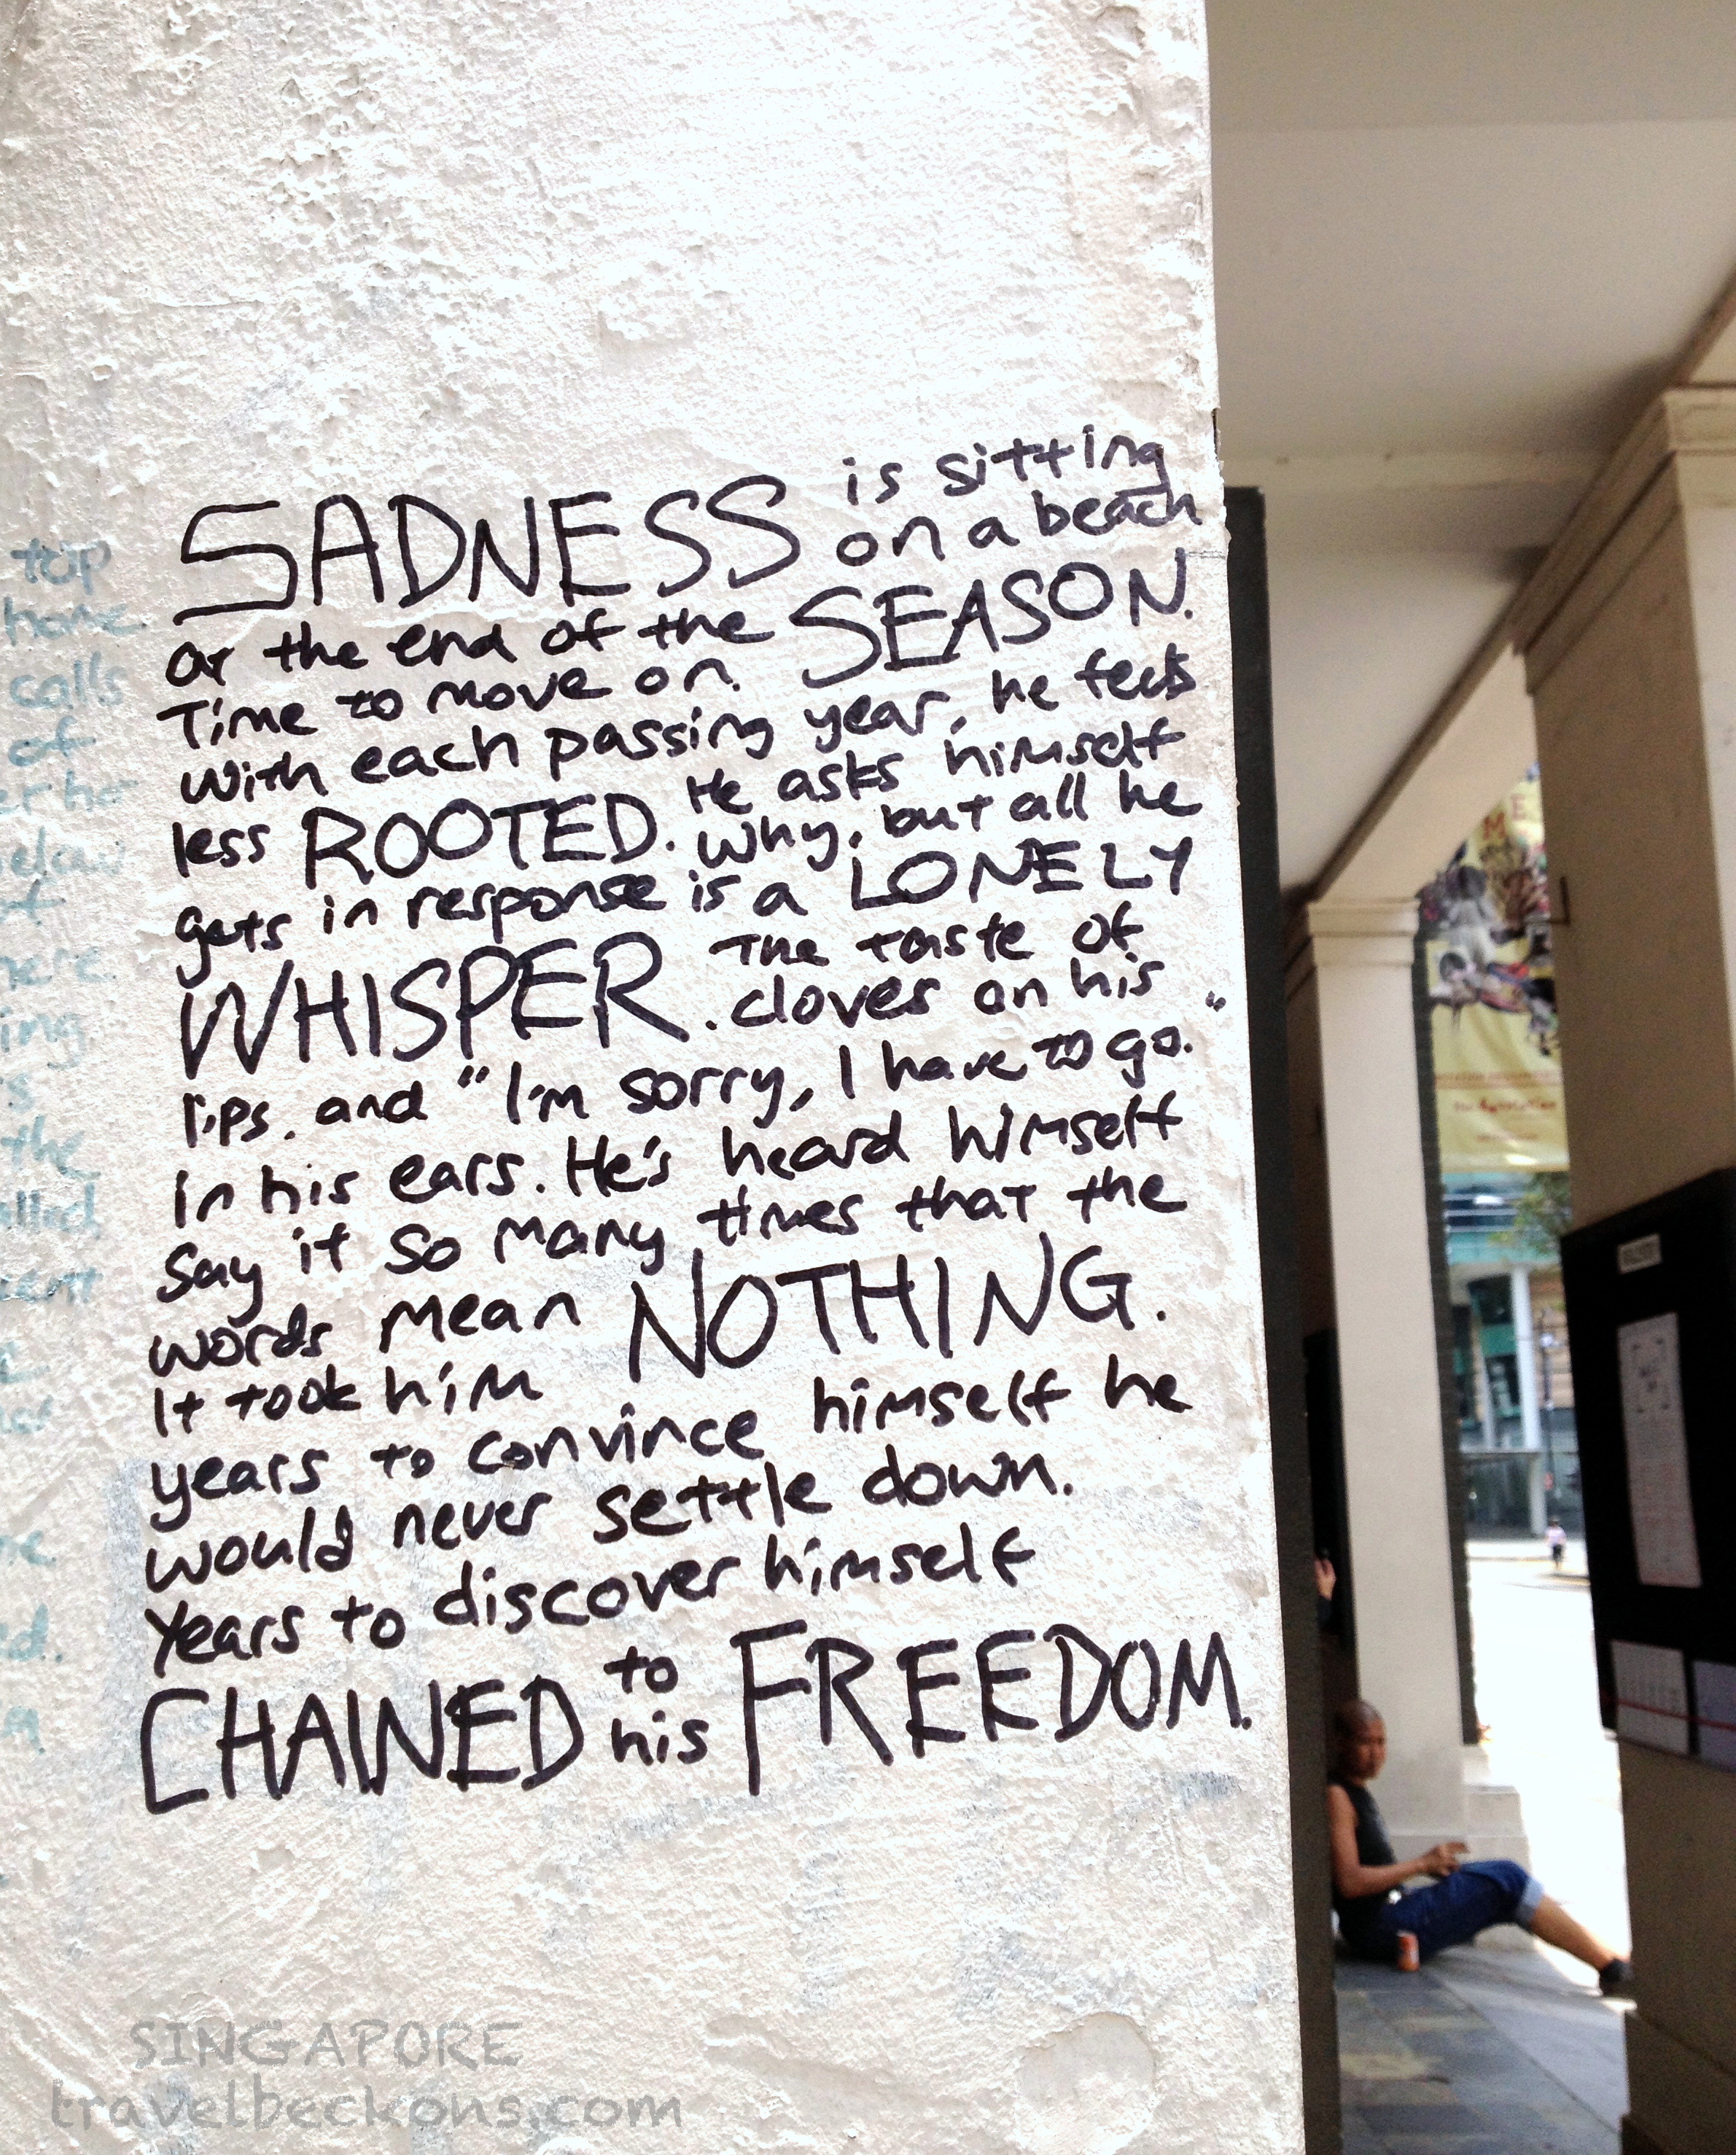 SADNESS is sitting
on a beach
at the end of the SEASON.
Time to move on.
With each passing year, he feels
less ROOTED. He asks himself
why, but all he
gets in response is a LONELY
WHISPER. The taste of
cloves on his
lips. and "I'm sorry, I have to go."
In his ears. He's heard himself
say it so many times that the
words mean NOTHING.
It took him
years to convince himself he
would never settle down.
Years to discover himself
CHAINED to his FREEDOM.
top
home
calls
of
the
SINGAPORE
travelbeckons.com